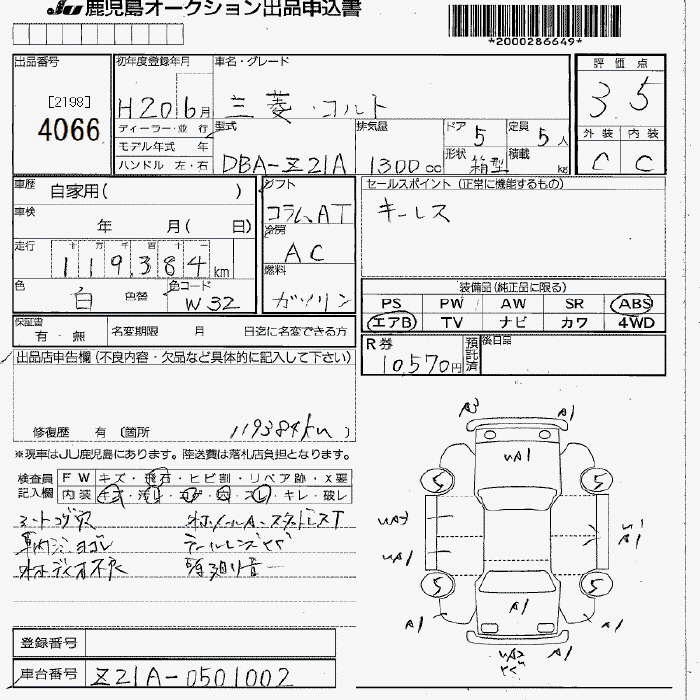 JU 鹿児島オークション出品申込書
*2000286649*
出品番号
[2198]
4066
初年度登録年月
H20 6月
ディーラー・並 行
モデル年式 年
ハンドル 左・右
車名・グレード
三菱・コルト
型式
DBA-Z21A
排気量
1300cc
ドア 5
形状 箱型
定員 5人
積載 kg
評 価 点
3 5
外 装 内 装
C C
車歴
自家用( )
車検
年 月( 日)
走行
十 万 千 百 十 一
119,384km
色
白 色替
色コード
W32
シフト
コラムAT
冷房
AC
燃料
ガソリン
セールスポイント (正常に機能するもの)
キーレス
装備品(純正品に限る)
PS PW AW SR ABS
エアB TV ナビ カワ 4WD
保証書
有・無
名変期限 月 日迄に名変できる方
R券
10,570円
預託済
後日品
出品店申告欄(不良内容・欠品など具体的に記入して下さい)
修復歴 有 (箇所 119384km )
※現車はJU鹿児島にあります。陸送費は落札店負担となります。
検査員
記入欄
FW キズ・飛石・ヒビ割・リペア跡・X要
内装 キレ・破レ
シートコゲ穴
車内ジヨゴレ
オーディオ不良
A3 A1
UA1
5 5
UA3
UA1
A1
5 5
A1 A1 A1
UA2
登録番号
車台番号 Z21A-0501002